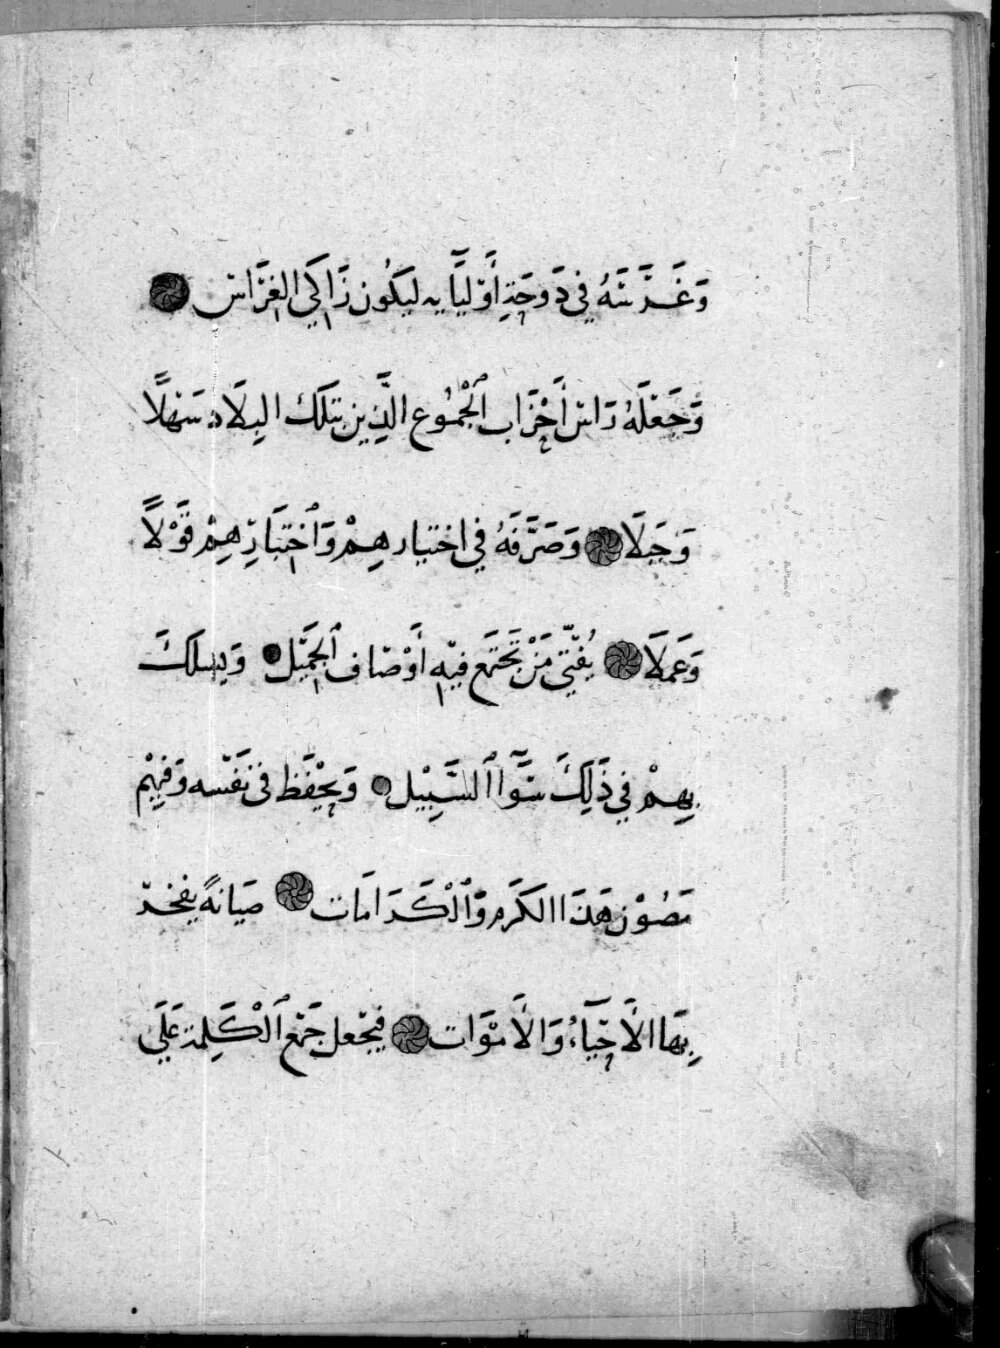 وَغَرَّسَتَهُ فِي دَوحَةِ أَوْلِيَآيه لِيَكُون زَاكِيَ الغِرَاس
وَجَعَلَهُ رَاسَ أَحْزَاب ٱلْجُمُوع الَّذِين بتلكَ البِلَاد سَهْلًا
وَجَبَلَا وَصَرَّفَهُ فِي اختيارهِمْ وَٱخْتِبَارِهِمْ قَوْلًا
وَعَمَلَا يُفْتِي مَنْ تَجْتَمع فِيْهِ أَوْصَاف ٱلجَمِيْل وَيسلكَ
بِهِمْ فِي ذَلِكَ سَوَآ ٱلسَّبِيْل وَيحْفَظ فى نَفْسه وَفِيهِمْ
مَصُوْن هَذَا الكَرَم وَٱلْكَرَامَات صَيَانةً يفخر
بِهَا الأَحْيَآءُ وَالأَمْوَات فيَجْعل جَمْع ٱلْكَلِمة عَلَي